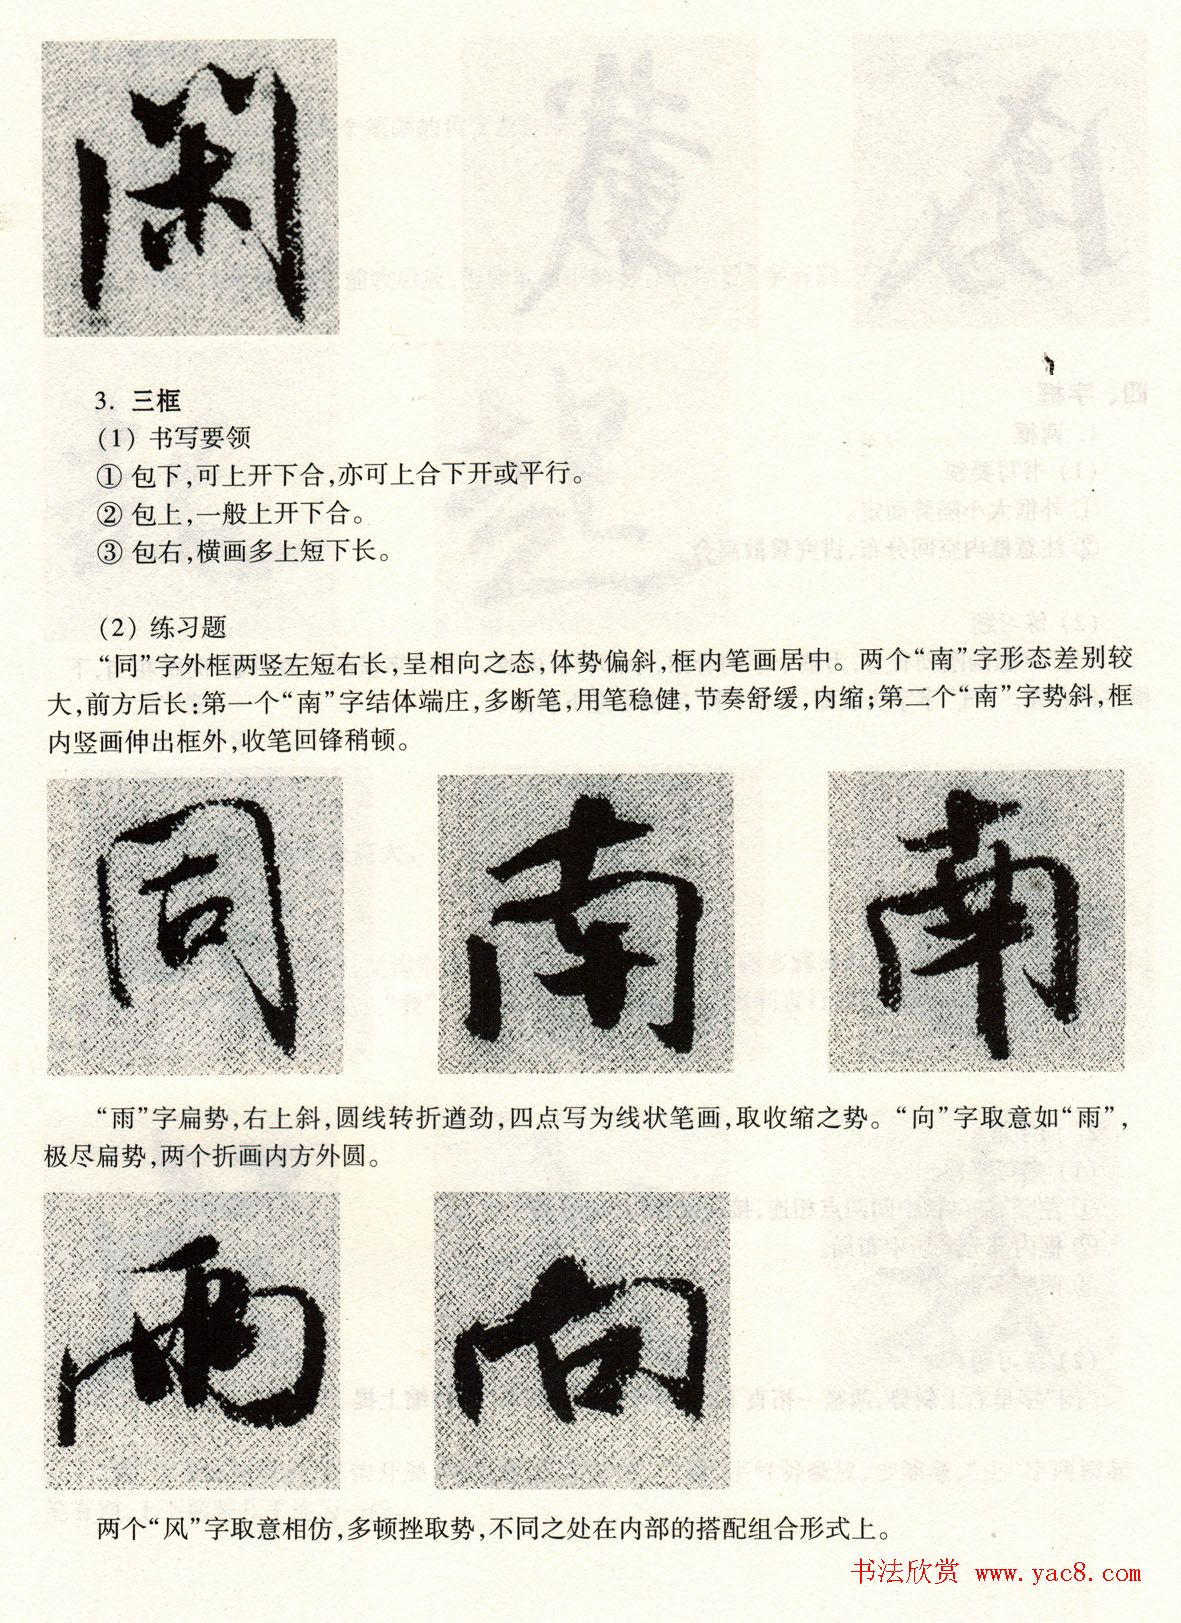 闲
3. 三框
(1) 书写要领
① 包下,可上开下合,亦可上合下开或平行。
② 包上,一般上开下合。
③ 包右,横画多上短下长。
(2) 练习题
“同”字外框两竖左短右长,呈相向之态,体势偏斜,框内笔画居中。两个“南”字形态差别较
大,前方后长:第一个“南”字结体端庄,多断笔,用笔稳健,节奏舒缓,内缩;第二个“南”字势斜,框
内竖画伸出框外,收笔回锋稍顿。
同 南 南
“雨”字扁势,右上斜,圆线转折遒劲,四点写为线状笔画,取收缩之势。“向”字取意如“雨”,
极尽扁势,两个折画内方外圆。
雨 向
两个“风”字取意相仿,多顿挫取势,不同之处在内部的搭配组合形式上。
书法欣赏 www.yac8.com